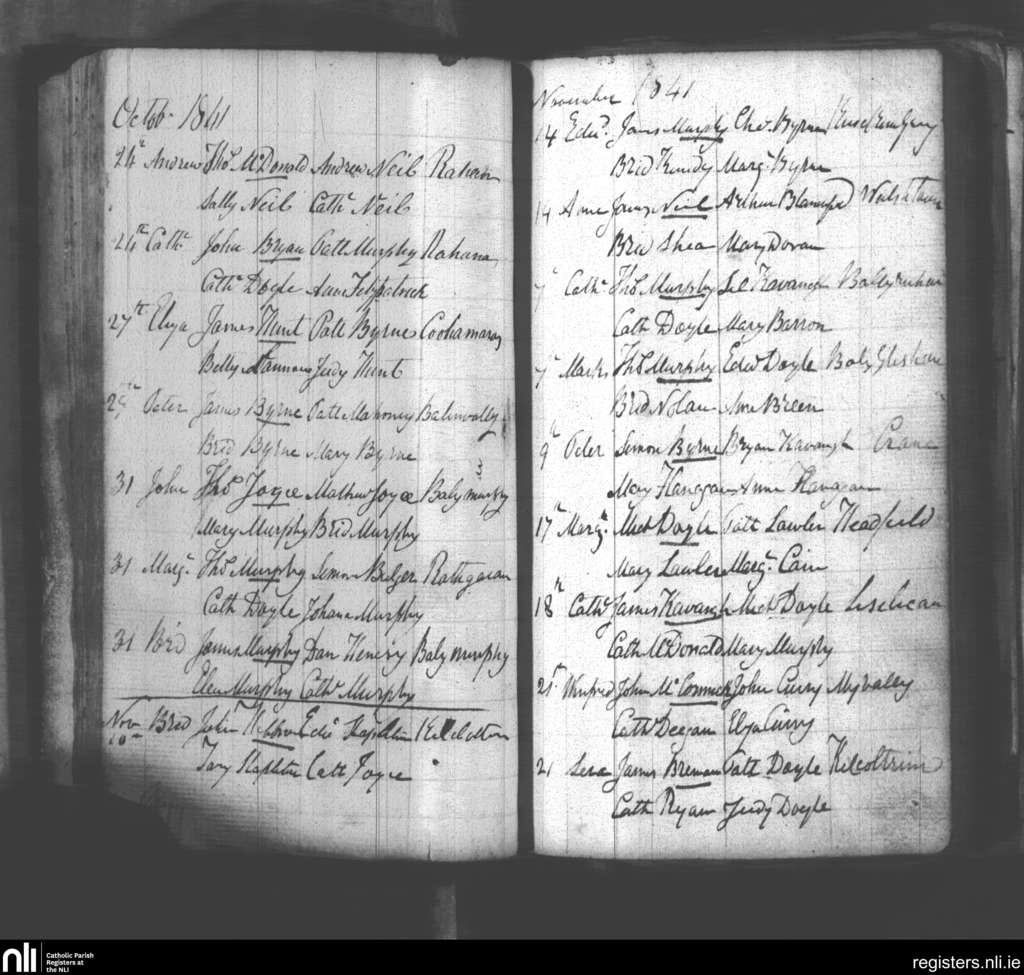 October 1841
24th Andrew Thos McDonald Andrew Neil Rahan
Sally Neil Cathe Neil
24th Cathe John Bryan Patt Murphy Rahana
Cathe Doyle Ann Fitzpatrick
27th Eliza James Hunt Patt Byrne
Betty Judy Hunt
29th Peter James Byrne Patt Mahoney Balinvally
Brid Byrne Mary Byrne
31 John Thos Joyce Mathew Joyce Balymurphy
Mary Murphy Brid Murphy
31 Margt Thos Murphy Simon Bulger Rathgaran
Cath Doyle Johana Murphy
31 Brid James Murphy Dan Henery Balymurphy
Elen Murphy Cathe Murphy
Novr Bred John
10th
Stapleton Cath Joyce
November 1841
14 Edwd James Murphy Chas Byrne
Brid Kenedy Margt Byrne
14 Anne James Neil Arthur
Brid Shea Mary Doran
7 Cathe Thos Murphy Kavanagh
Cath Doyle Mary Barron
7 Thos Murphy Edwd Doyle
Brid Nolan Ann Breen
9th Peter Simon Byrne Bryan Kavangh Crane
Mary Flanagan Anne Flanagan
17th Margt Michl Doyle Patt Lawler Headfield
Mary Lawler Margt Cain
18th Cathe James Kavangh Michl Doyle
Cath McDonald Mary Murphy
21st Winfred John McCormick John Curry
Cathe Deegan Eliza Curry
21 James Brenan Patt Doyle Kilcoltrim
Cath Ryan Judy Doyle
nli
Catholic Parish
Registers at
the NLI
registers.nli.ie